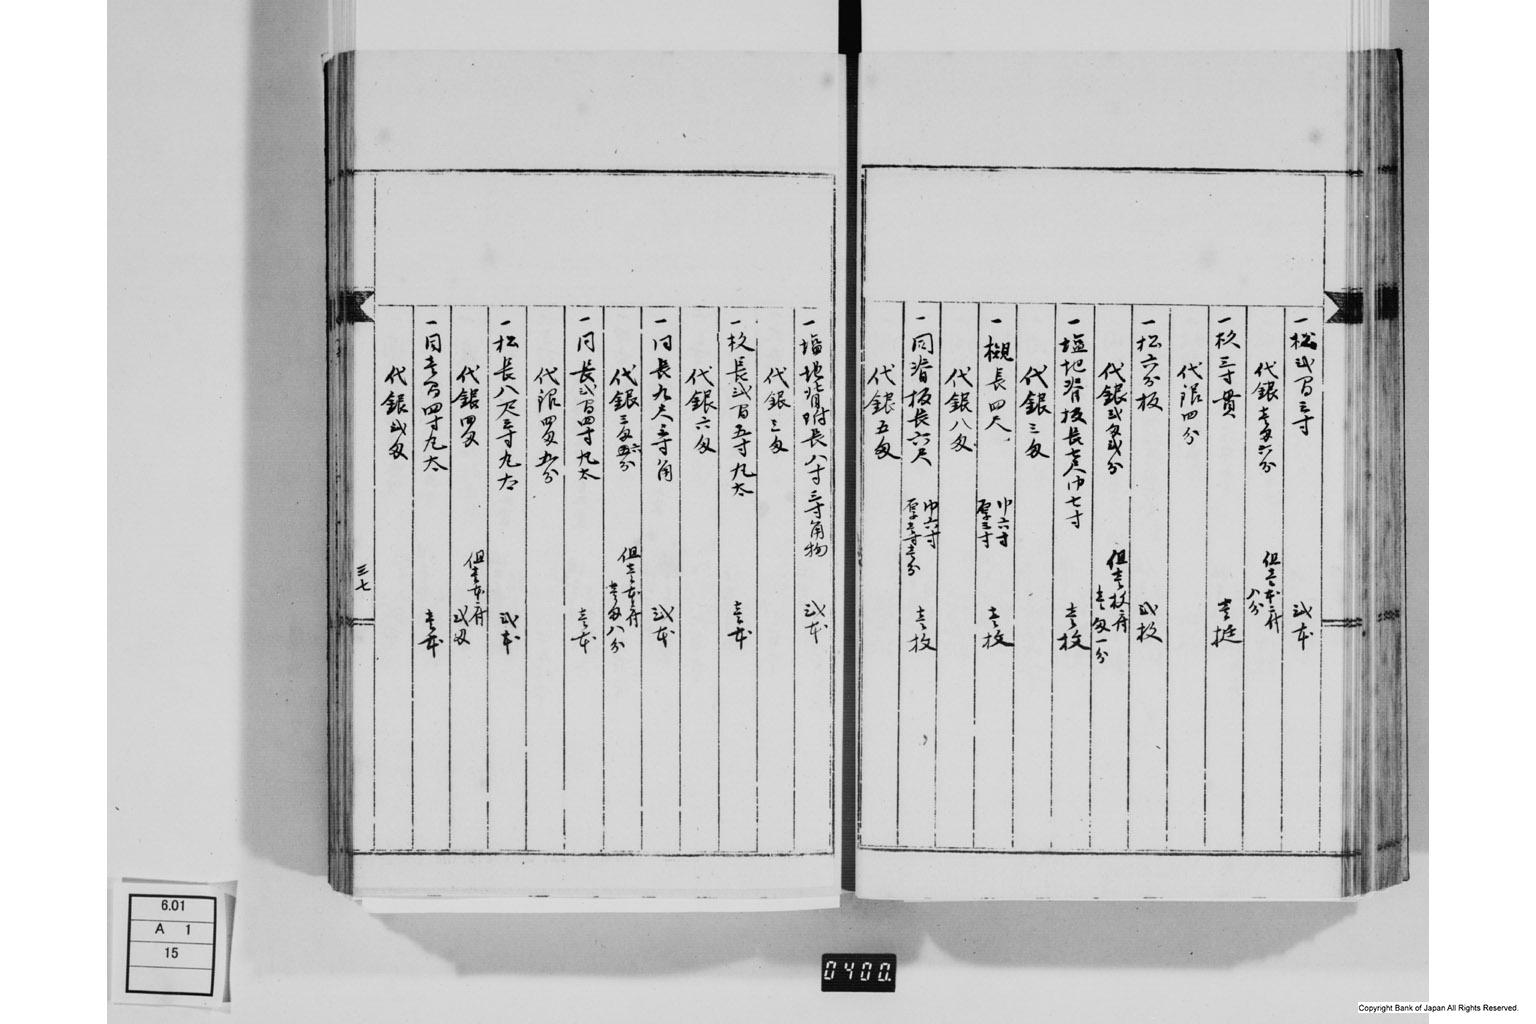 一松弐間三寸 弐本
代銀壱匁六分 但壱本ニ付八分
一杉三寸貫 壱挺
代銀四分
一松六分板 弐枚
代銀弐匁弐分 但壱枚ニ付壱匁一分
一塩地脊板長壱尺巾七寸 壱枚
代銀三匁
一槻長四尺 巾六寸厚三寸 壱枚
代銀八匁
一同脊板長六尺 巾六寸厚壱寸壱分 壱枚
代銀五匁
一塩地背附長八寸三寸角物 弐本
代銀三匁
一杦長弐間五寸丸太 壱本
代銀六匁
一同長九尺三寸角 弐本
代銀三匁六分 但壱本ニ付壱匁八分
一同長弐間四寸丸太 壱本
代銀四匁五分
一松長八尺三寸丸太 弐本
代銀四匁 但壱本ニ付弐匁
一同壱間四寸丸太 壱本
代銀弐匁
三七
6.01
A 1
15
0400.
Copyright Bank of Japan All Rights Reserved.